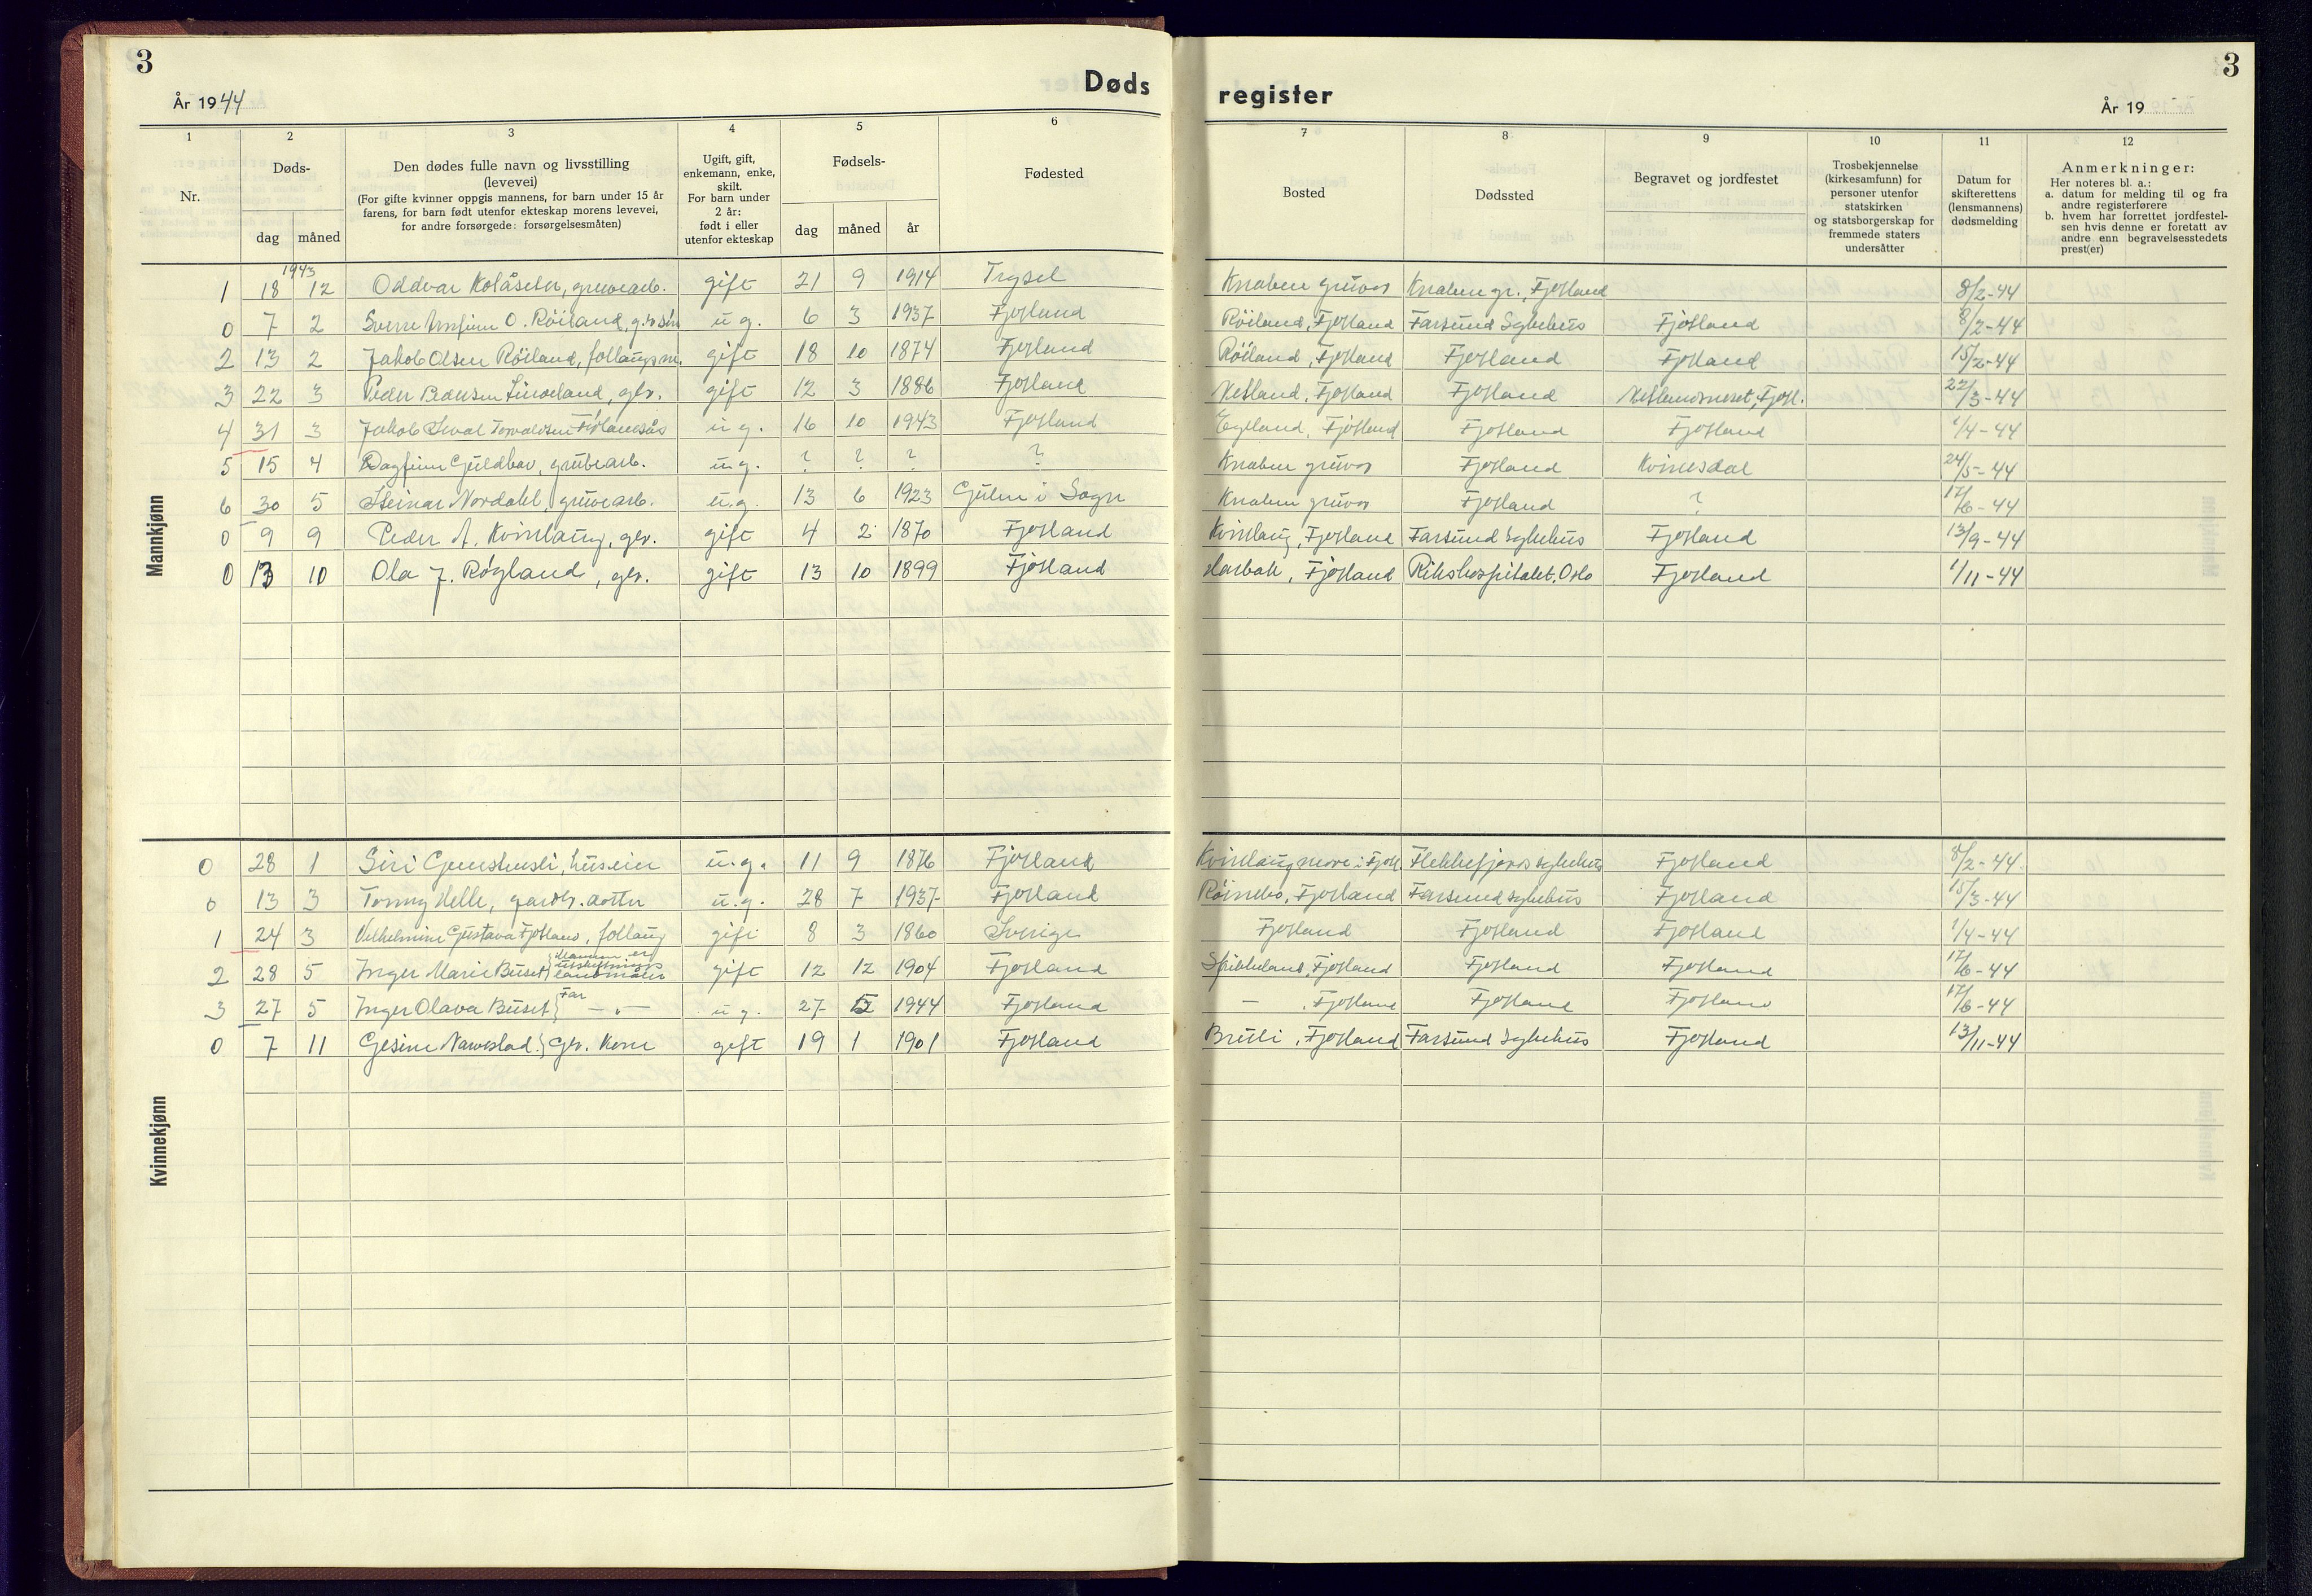 3
3
Døds
register
År 1944
År 19
1
2
3
4
5
6
7
8
9
10
11
12
Nr.
Døds-
dag
måned
Den dødes fulle navn og livsstilling
(levevei)
(For gifte kvinner oppgis mannens, for barn under 15 år
farens, for barn født utenfor ekteskap morens levevei,
for andre forsørgede: forsørgelsesmåten)
Ugift, gift,
enkemann, enke,
skilt.
For barn under
2 år:
født i eller
utenfor ekteskap
Fødsels-
dag
måned
år
Fødested
Bosted
Dødssted
Begravet og jordfestet
Trosbekjennelse
(kirkesamfunn) for
personer utenfor
statskirken
og statsborgerskap for
fremmede staters
undersåtter
Datum for
skifterettens
(lensmannens)
dødsmelding
Anmerkninger:
Her noteres bl. a.:
a. datum for melding til og fra
andre registerførere
b. hvem har forrettet jordfestel-
sen hvis denne er foretatt av
andre enn begravelsesstedets
prest(er)
Mannkjønn
1943
1 18 12 Oddvar Kolåseter, gruvearb. gift 21 9 1914 Trysel Knaben gruver Knaben gr., Fjotland 8/2-44
0 7 2 Sverre Arnfinn O. Röiland, g.br. sön u g. 6 3 1937 Fjotland Röiland, Fjotland Farsund Sykehus Fjotland 8/2-44
2 13 2 Jakob Olsen Röiland, gift 18 10 1874 Fjotland Röiland, Fjotland Fjotland Fjotland 15/2-44
3 22 3 Peder Pedersen gbr. gift 12 3 1886 Fjotland Netland, Fjotland Fjotland Netlandsneset, Fjotl. 22/3-44
4 31 3 Jakob Torvaldsen u g. 16 10 1943 Fjotland Eyeland, Fjotland Fjotland Fjotland 1/4-44
5 15 4 Dagfinn Guldhav, grubearb. u.g. ? ? ? ? Knaben gruver Fjotland Kvinesdal 24/5-44
6 30 5 Steinar Nordahl, gruvearb. u.g. 13 6 1923 Gulen i Sogn Knaben gruver Fjotland ? 17/6-44
0 9 9 Peder A. Kvinlaug, gbr. gift 4 2 1870 Fjotland Kvinlaug, Fjotland Farsund Sykehus Fjotland 13/9-44
0 13 10 Ola J. Røyland, gbr. gift 13 10 1899 Fjotland Fjotland Rikshospitalet, Oslo Fjotland 1/11-44
Kvinnekjønn
0 28 1 Siri u.g. 11 9 1876 Fjotland Kvinlaugmoen i Fjotl. Flekkefjords sykehus Fjotland 8/2-44
0 13 3 Tonny Helle, gardbr. dotter u.g. 28 7 1937 Fjotland Röinebo, Fjotland Farsund sykehus Fjotland 15/3-44
1 24 3 Vilhelmine Gustava Fjotland, gift 8 3 1860 Sverige Fjotland Fjotland Fjotland 1/4-44
Mannen er
utskiftnings
2 28 5 Inger Marie Buset landmåler gift 12 12 1904 Fjotland Fjotland Fjotland Fjotland 17/6-44
3 27 5 Inger Olava Buset Far — " — u g. 27 5 1944 Fjotland — , Fjotland Fjotland Fjotland 17/6-44
0 7 11 Gesine Narvestad, gbr. kone gift 19 1 1901 Fjotland Bruli, Fjotland Farsund Sykehus Fjotland 13/11-44